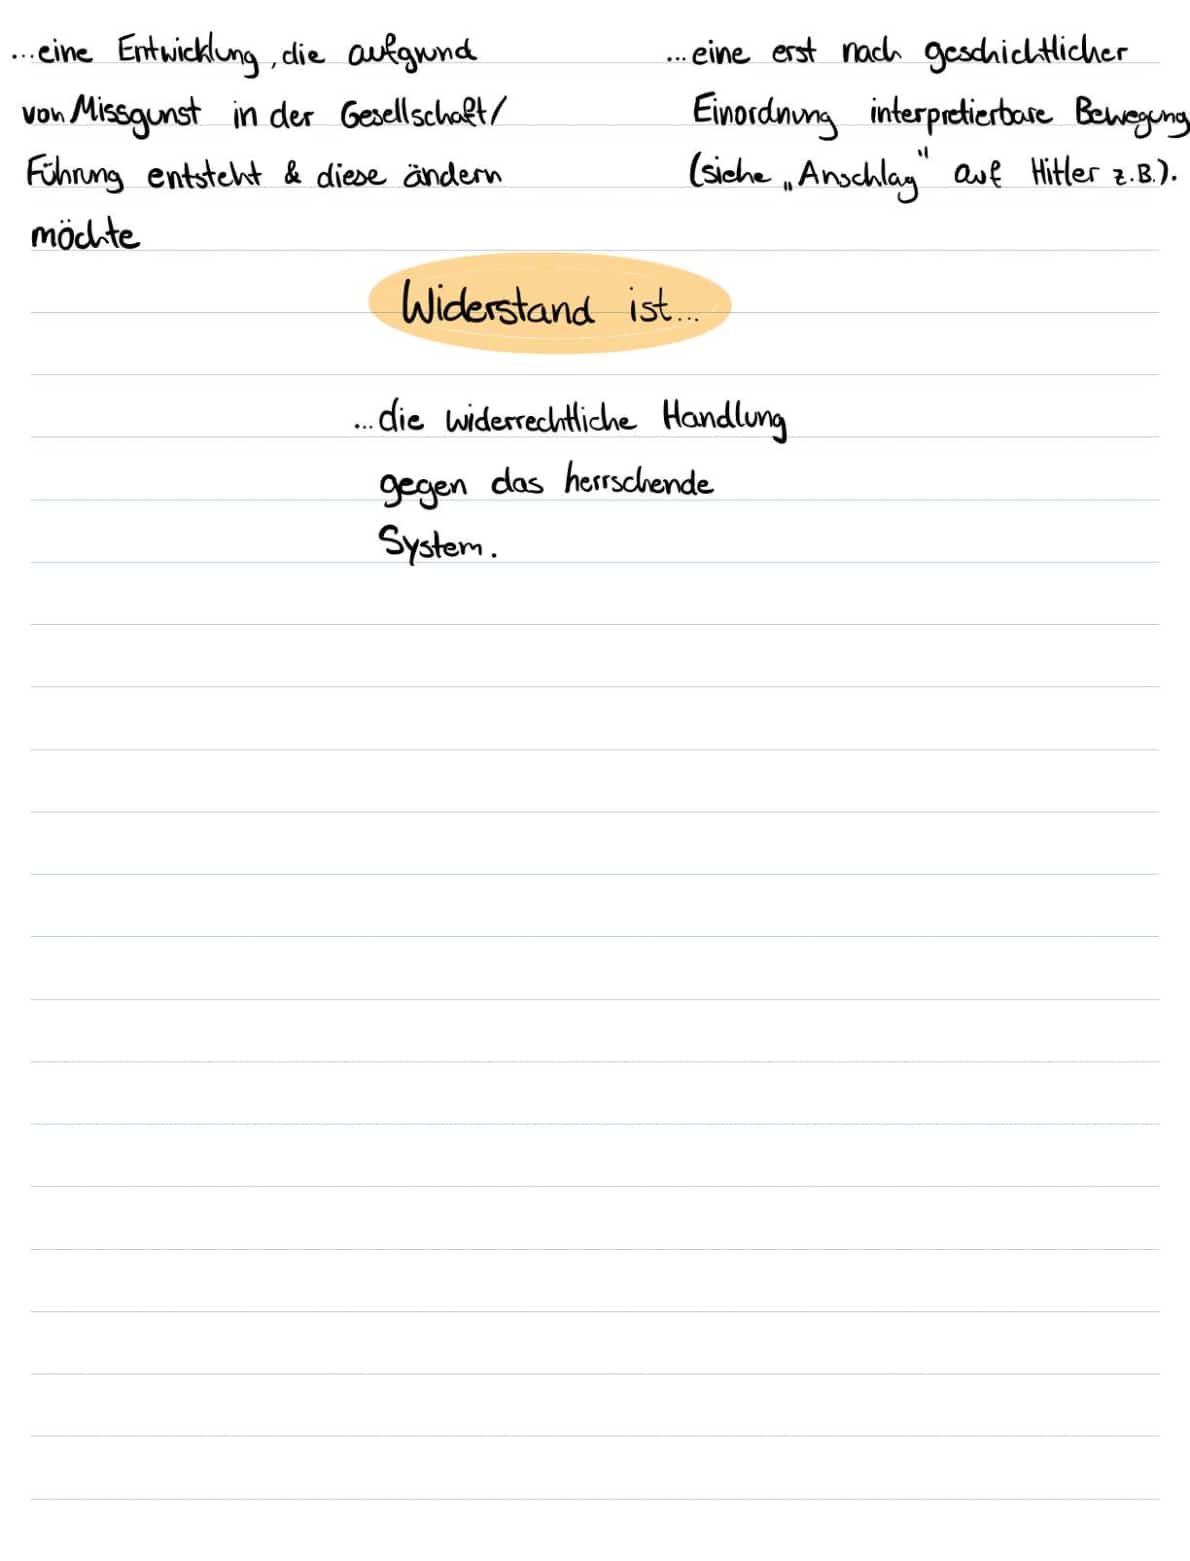 ...eine Entwicklung, die aufgrund
von Missgunst in der Gesellschaft/
Führung entsteht & diese ändern
möchte
...eine erst nach geschichtlicher
Einordnung interpretierbare Bewegung
(siehe „Anschlag" auf Hitler z.B.).
Widerstand ist...
...die widerrechtliche Handlung
gegen das herrschende
System.